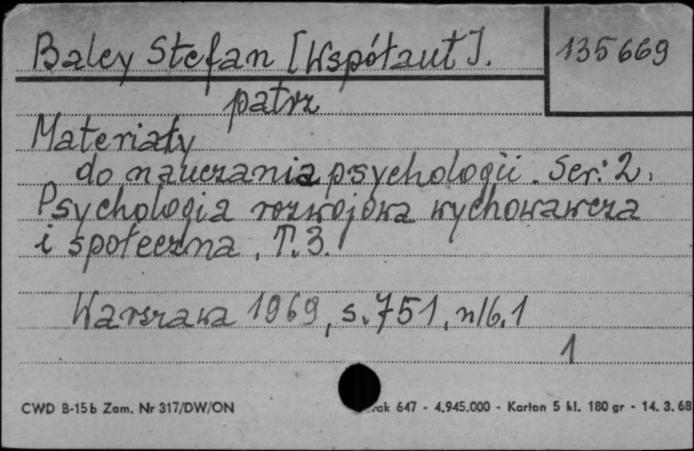 Baley Stefan [Współaut]. 135669
patrz
Materiały
do nauczania psychologii. Ser: 2.
Psychologia rozwojowa wychowawcza
i społeczna, T. 3.
Warszawa 1969, s. 751, nlb. 1
1
CWD B-15b Zam. Nr 317/DW/ON 647 - 4.945.000 - Karton 5 kl. 180 gr - 14. 3. 68